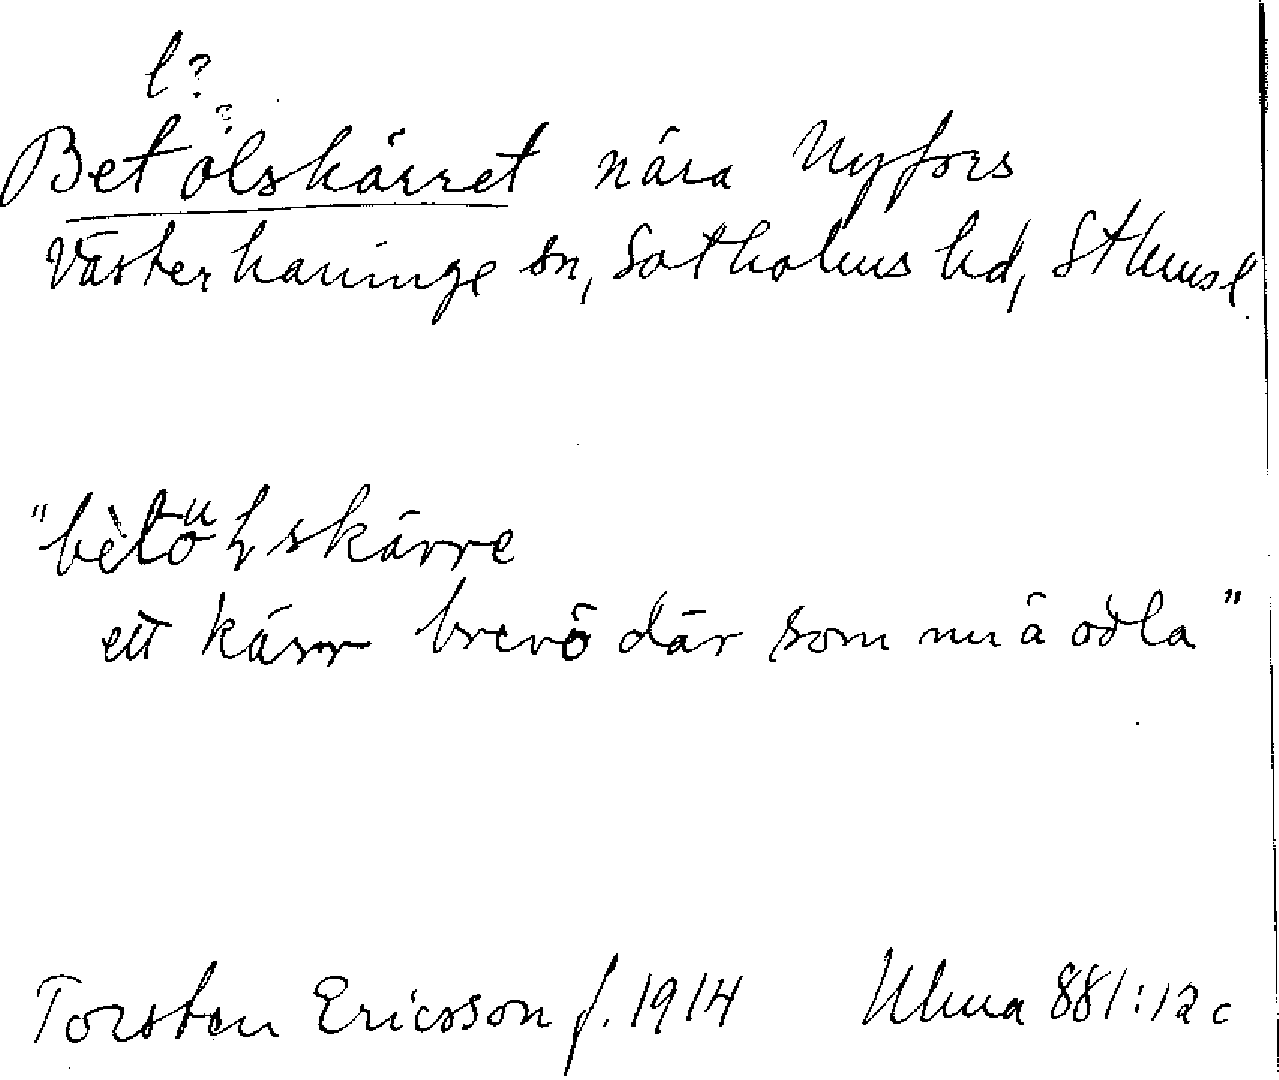 l?
?
Betölskärret nära Nyfors
Västerhaninge sn, Sotholms hd, Sthmsl.
"bètö skärre
ett kärr brevë där som nu ä odla"
Torsten Ericsson f. 1914 Uma 881:12c